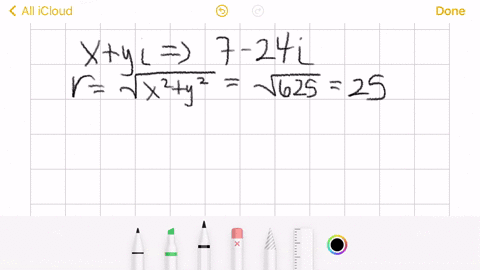 All iCloud Done
x+yi => 7-24i
r = √x²+y² = √625 = 25